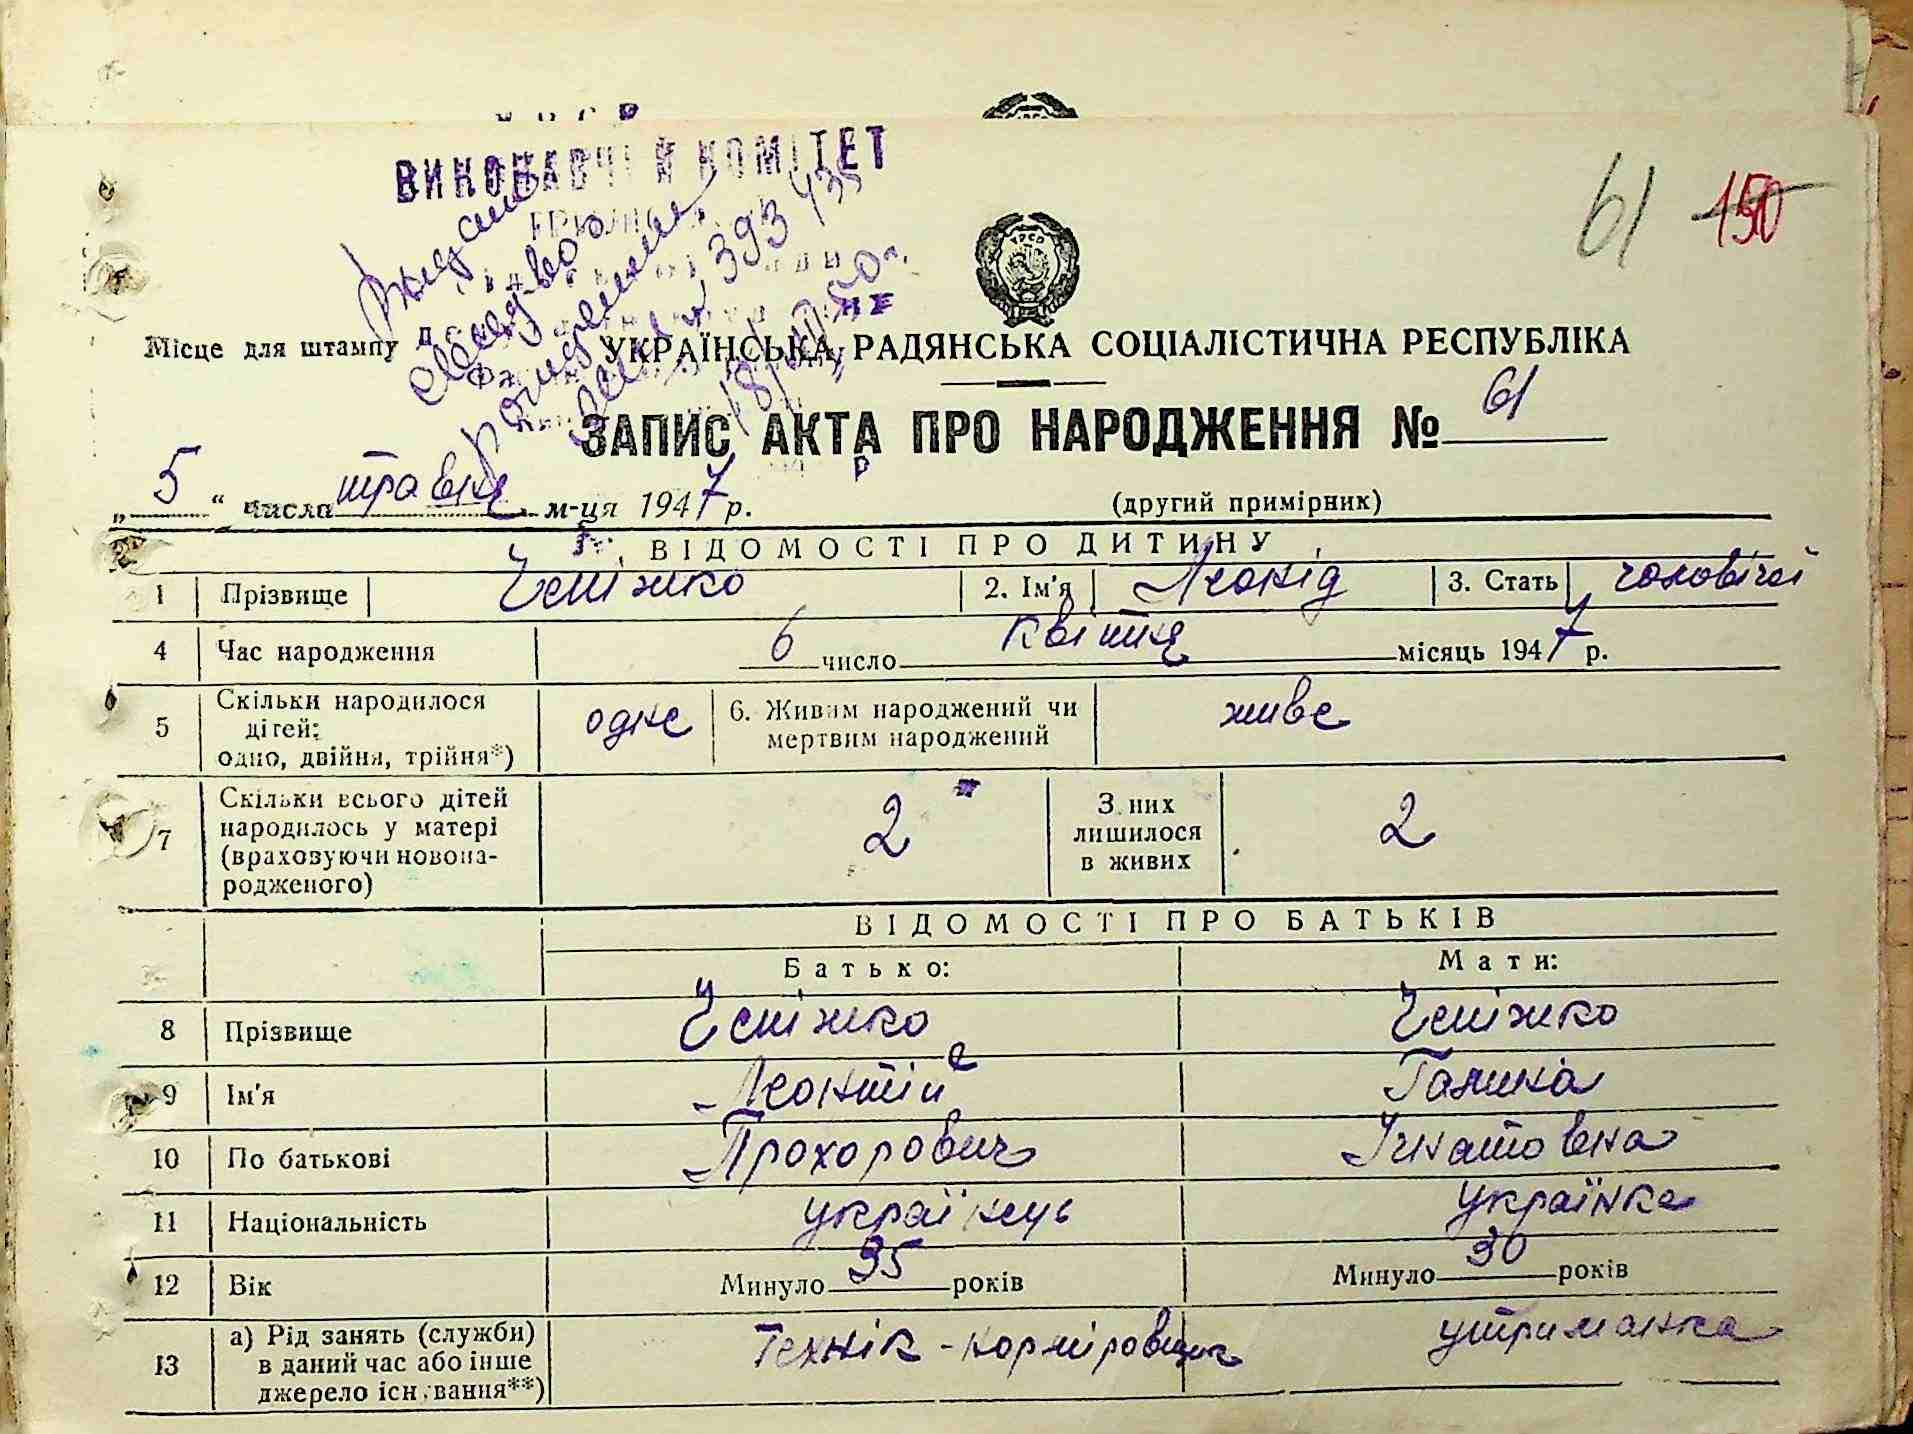 ВИКОНАВЧИЙ КОМІТЕТ
61 150
Видано
свідоцтво
393435
18/VIII 50 р.
Місце для штампу
УКРАЇНСЬКА РАДЯНСЬКА СОЦІАЛІСТИЧНА РЕСПУБЛІКА
ЗАПИС АКТА ПРО НАРОДЖЕННЯ № 61
„ 5 “ числа травня м-ця 1947 р. (другий примірник)
ВІДОМОСТІ ПРО ДИТИНУ
1 Прізвище Чепіжко 2. Ім'я Леонід 3. Стать чоловічої
4 Час народження 6 число квітня місяць 1947 р.
5 Скільки народилося дітей: одно, двійня, трійня*) одне 6. Живим народжений чи мертвим народжений живе
7 Скільки всього дітей народилось у матері (враховуючи новонародженого) 2 З них лишилося в живих 2
ВІДОМОСТІ ПРО БАТЬКІВ
Батько: Мати:
8 Прізвище Чепіжко Чепіжко
9 Ім'я Леонтій Галина
10 По батькові Прохорович Ігнатовна
11 Національність українець українка
12 Вік Минуло 35 років Минуло 30 років
13 а) Рід занять (служби) в даний час або інше джерело існування**) технік-норміровщик утриманка